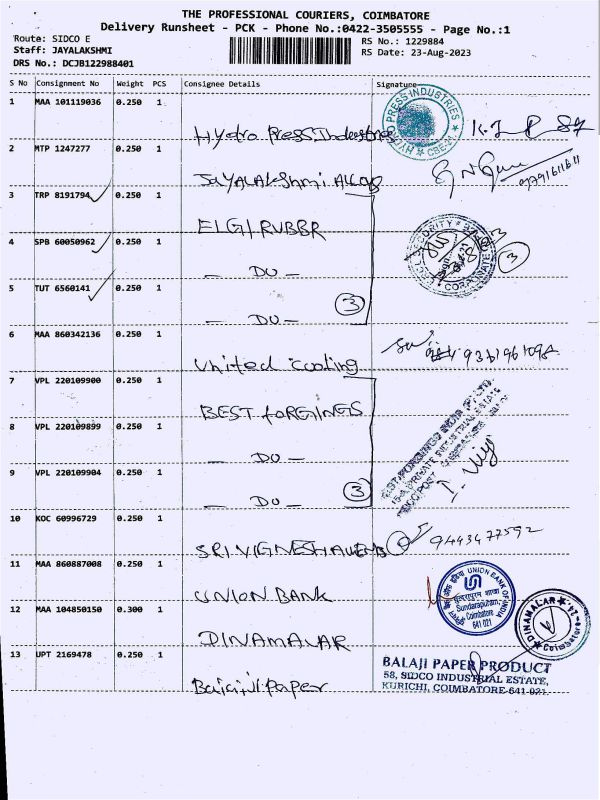 THE PROFESSIONAL COURIERS, COIMBATORE
Delivery Runsheet - PCK - Phone No.:0422-3505555 - Page No.:1
Route: SIDCO E
RS No.: 1229884
Staff: JAYALAKSHMI
RS Date: 23-Aug-2023
DRS No.: DCJB122988401
S No Consignment No Weight PCS Consignee Details Signature
1 MAA 101119036 0.250 1
Hydro Press Industries
HYDRO PRESS INDUSTRIES CBE-21
2 MTP 1247277 0.250 1
JAYALAKshmi ALLOYS
3 TRP 8191794 0.250 1
ELGI RUBBR
4 SPB 60050962 0.250 1
— DO —
SECURITY
3
5 TUT 6560141 0.250 1
— DO — 3
6 MAA 860342136 0.250 1
United cooling
7 VPL 220109900 0.250 1
BEST FORGINGS
8 VPL 220109899 0.250 1
— DO —
9 VPL 220109904 0.250 1
— DO — 3
10 KOC 60996729 0.250 1
9443477592
11 MAA 860887008 0.250 1
UNION BANK
UNION BANK OF INDIA
Sundarapuram,
Coimbatore
641 021
12 MAA 104850150 0.300 1
DINAMALAR
DINAMALAR Coimbatore
13 UPT 2169478 0.250 1
Balaji Paper
BALAJI PAPER PRODUCT
58, SIDCO INDUSTRIAL ESTATE,
KURICHI, COIMBATORE-641 021.